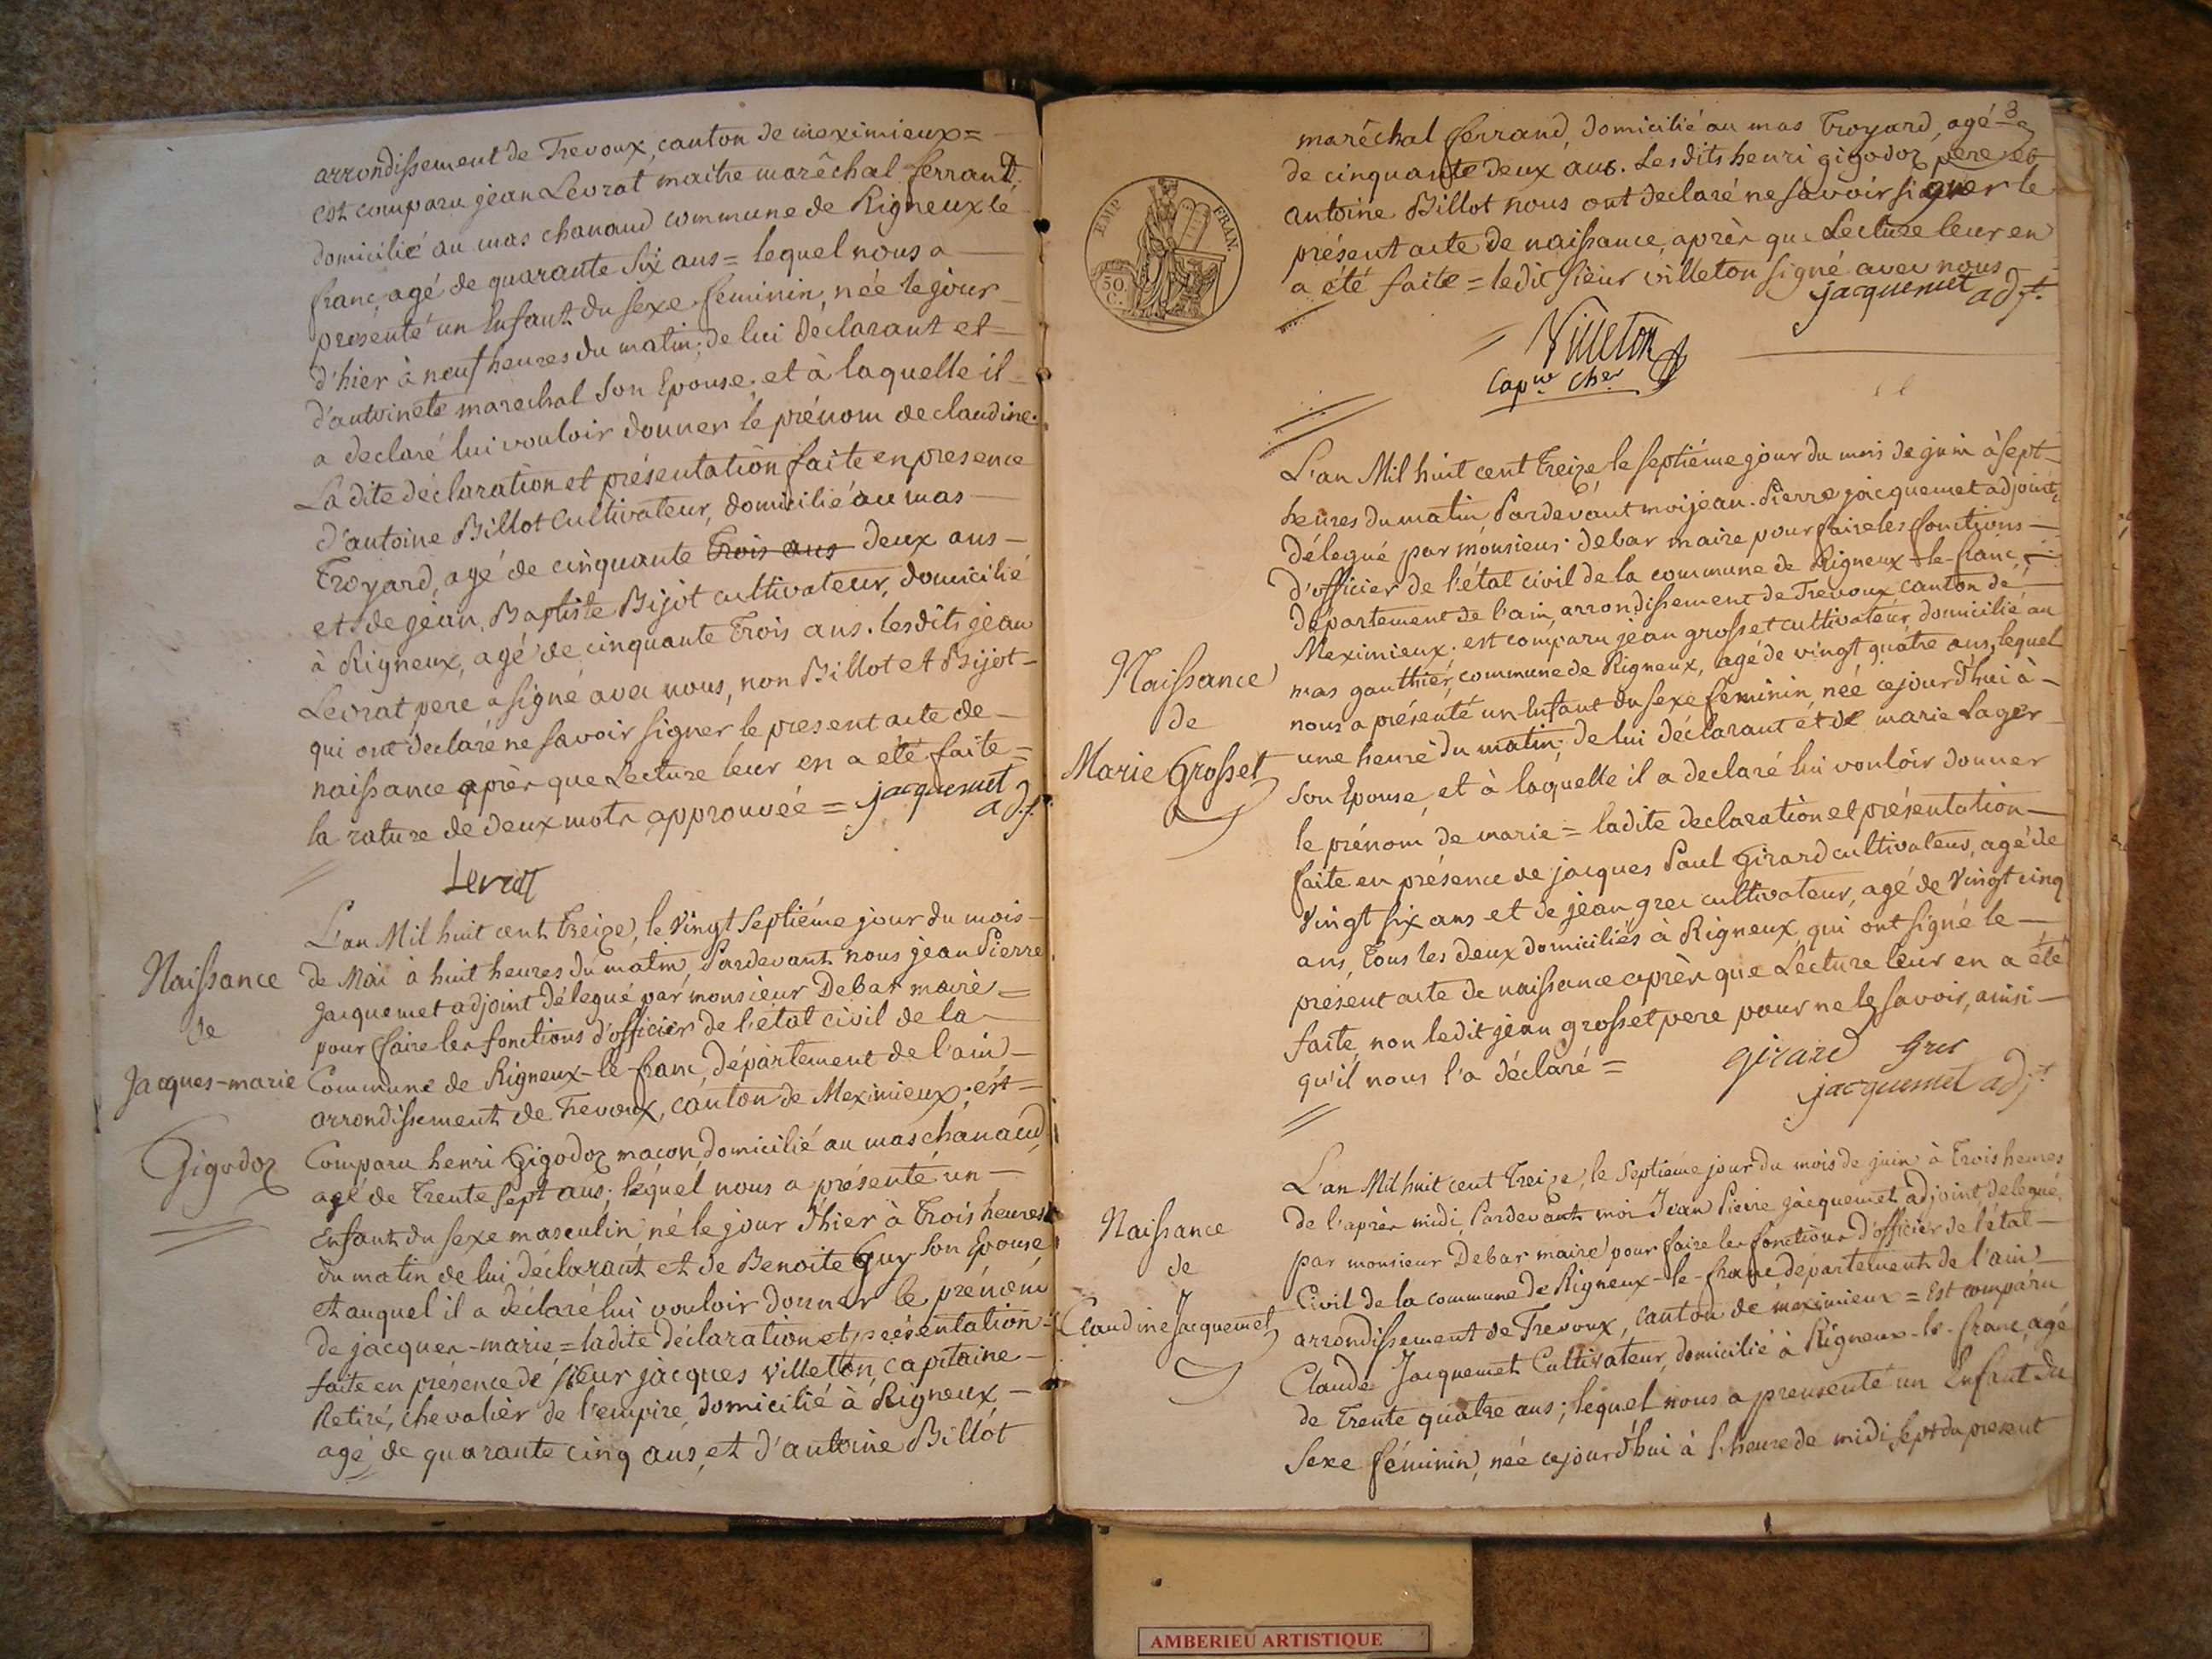 arrondissement de Trevoux, canton de meximieux =
est comparu jean Levrat maitre maréchal ferrant,
domicilié au mas chanaud commune de Rigneux le
franc, agé de quarante six ans = lequel nous a
présenté un Enfant du sexe feminin, née le jour
d'hier à neuf heures du matin; de lui déclarant et
d'antoinete marechal son Epouse, et à laquelle il
a declaré lui vouloir donner le prénom de claudine.
La dite déclaration et présentation faite en presence
d'antoine Billot Cultivateur, domicilié au mas
Troyard, agé de cinquante trois ans deux ans
et de jean Baptiste Bijot cultivateur, domicilié
à Rigneux, agé de cinquante Trois ans. lesdits jean
Levrat pere a signé avec nous, non Billot et Bijot
qui ont declaré ne savoir signer le present acte de
naissance après que Lecture leur en a été faite =
la rature de deux mots approuvée = jacquemet
adjt.
Levrat
Naissance
de
Jacques-marie
Gigodoz
L'an Mil huit cent treize, le vingt septiéme jour du mois
de Mai à huit heures du matin, Pardevant nous jean Pierre
Jacquemet adjoint délegué par monsieur Debar maire =
pour faire les fonctions d'officier de l'état civil de la
Commune de Rigneux-le-franc, département de l'ain
arrondissement de Trevoux, canton de Meximieux; est
Comparu henri Gigodoz maçon, domicilié au mas chanaud,
agé de Trente sept ans; lequel nous a présenté un
Enfant du sexe masculin, né le jour d'hier à Trois heures
du matin de lui déclarant et de Benoite Guy son Epouse
et auquel il a déclaré lui vouloir donner le prénom
de jacques-marie = ladite déclaration et présentation
faite en présence de sieur jacques Villeton, capitaine
Retiré, chevalier de l'empire, domicilié à Rigneux,
agé de quarante cinq ans, et d'antoine Billot
3
maréchal ferrand, domicilié au mas Troyard, agé
de cinquante deux ans. Lesdits henri gigodoz pere et
antoine Billot nous ont declaré ne savoir signer le
présent acte de naissance, après que Lecture leur en
a été faite = ledit sieur villeton signé avec nous
jacquemet adjt.
EMP. FRAN.
50.
C.
Villeton
Capne Cher
Naissance
de
Marie Grosset
L'an Mil huit cent Treize, le septiéme jour du mois de juin à sept
heures du matin Pardevant moi jean-Pierre jacquemet adjoint,
délegué par monsieur debar maire pour faire les fonctions
d'officier de l'état civil de la commune de Rigneux-le-franc,
département de l'ain, arrondissement de Trevoux canton de
Meximieux. est comparu jean grosset cultivateur, domicilié au
mas gauthier, commune de Rigneux, agé de vingt quatre ans, lequel
nous a présenté un Enfant du sexe féminin, née cejourd'hui à
une heure du matin; de lui déclarant et de marie Lager
son Epouse, et à laquelle il a declaré lui vouloir donner
le prénom de marie = ladite declaration et présentation
faite en présence de jacques Paul Girard cultivateur, agé de
Vingt six ans et de jean grec cultivateur, agé de Vingt cinq
ans, Tous les deux domiciliés à Rigneux, qui ont signé le
présent acte de naissance après que Lecture leur en a été
faite, non ledit jean grosset pere pour ne le savoir, ainsi
qu'il nous l'a déclaré =
girard grec
jacquemet adjt
Naissance
de
Claudine Jacquemet
L'an Mil huit cent Treize, le septiéme jour du mois de juin à trois heures
de l'après midi, Pardevant moi Jean Pierre jacquemet adjoint, delegué,
par monsieur Debar maire pour faire les fonctions d'officier de l'état
Civil de la commune de Rigneux-le-franc, département de l'ain
arrondissement de Trevoux, Canton de meximieux = Est comparu
Claude Jacquemet Cultivateur, domicilié à Rigneux-le-franc, agé
de trente quatre ans; lequel nous a présenté un Enfant du
Sexe féminin, née cejourd'hui à l'heure de midi, sept du present
AMBERIEU ARTISTIQUE